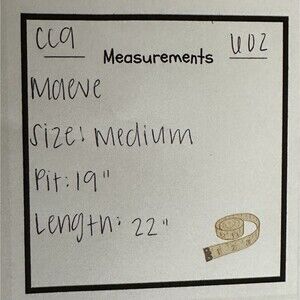 CC9
6 oz
Measurements
Maeve
Size: Medium
Pit: 19"
Length: 22"